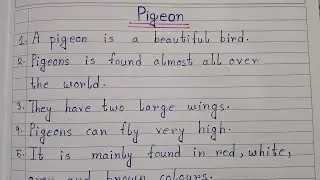 Pigeon
1. A pigeon is a beautiful bird.
2. Pigeons is found almost all over
the world.
3. They have two large wings.
4. Pigeons can fly very high.
5. It is mainly found in red, white,
grey and brown colours.